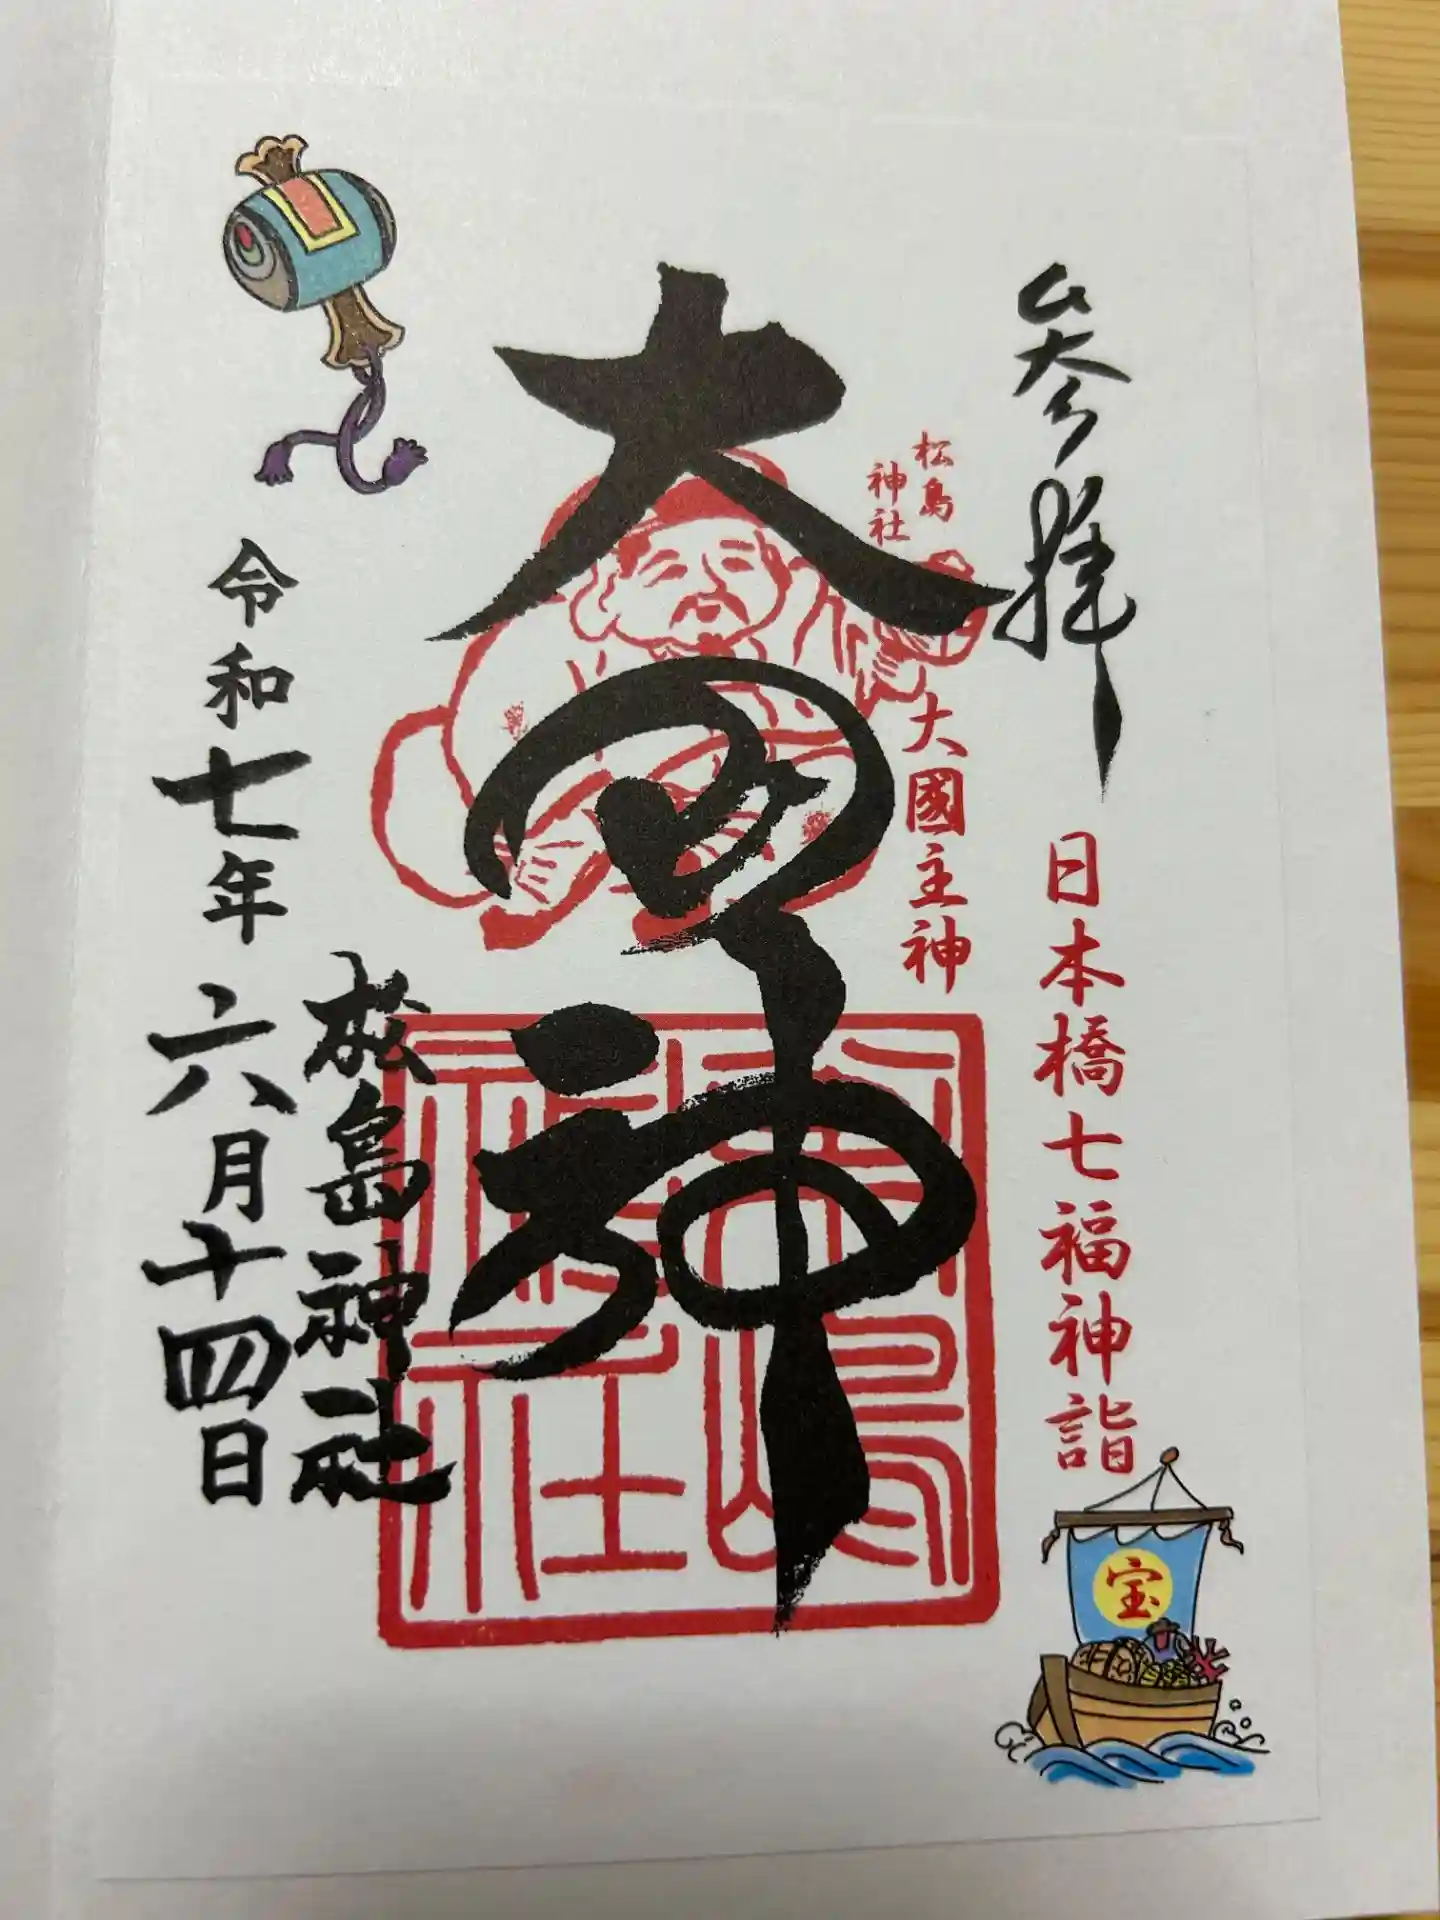 参拝
日本橋七福神詣
宝
松島
神社
大國主神
大黒神
松島神社
令和七年六月十四日